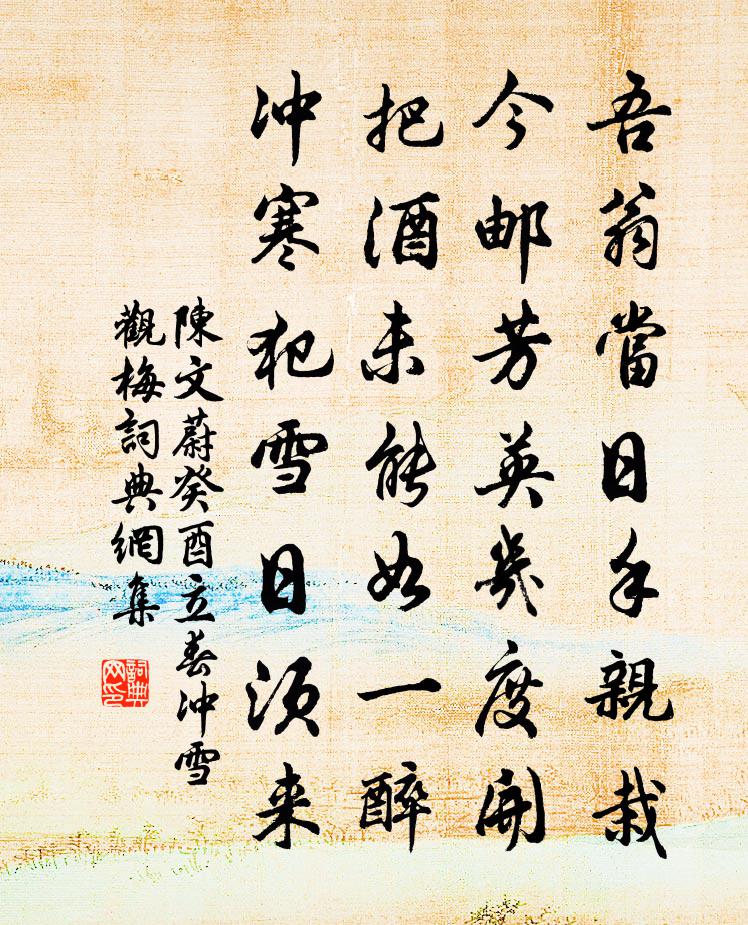 吾翁當日手親栽
今邮芳英幾度開
把酒未能如一醉
冲寒犯雪日須来
陳文蔚癸酉立春冲雪
觀梅詞典網集
詞典网印